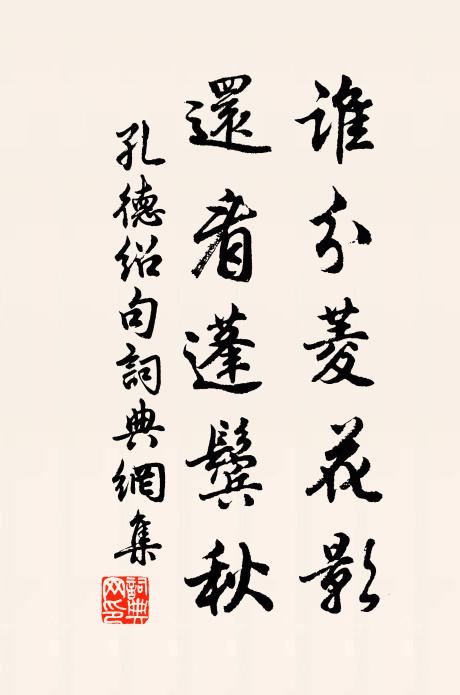 誰分菱花影
還看蓬鬢秋
孔德紹句詞典網集
詞典网印